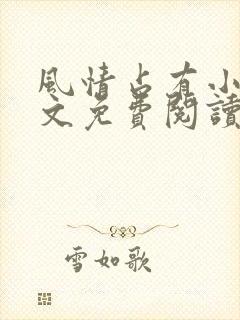 風情占有小
文免費閱讀
雪如歌